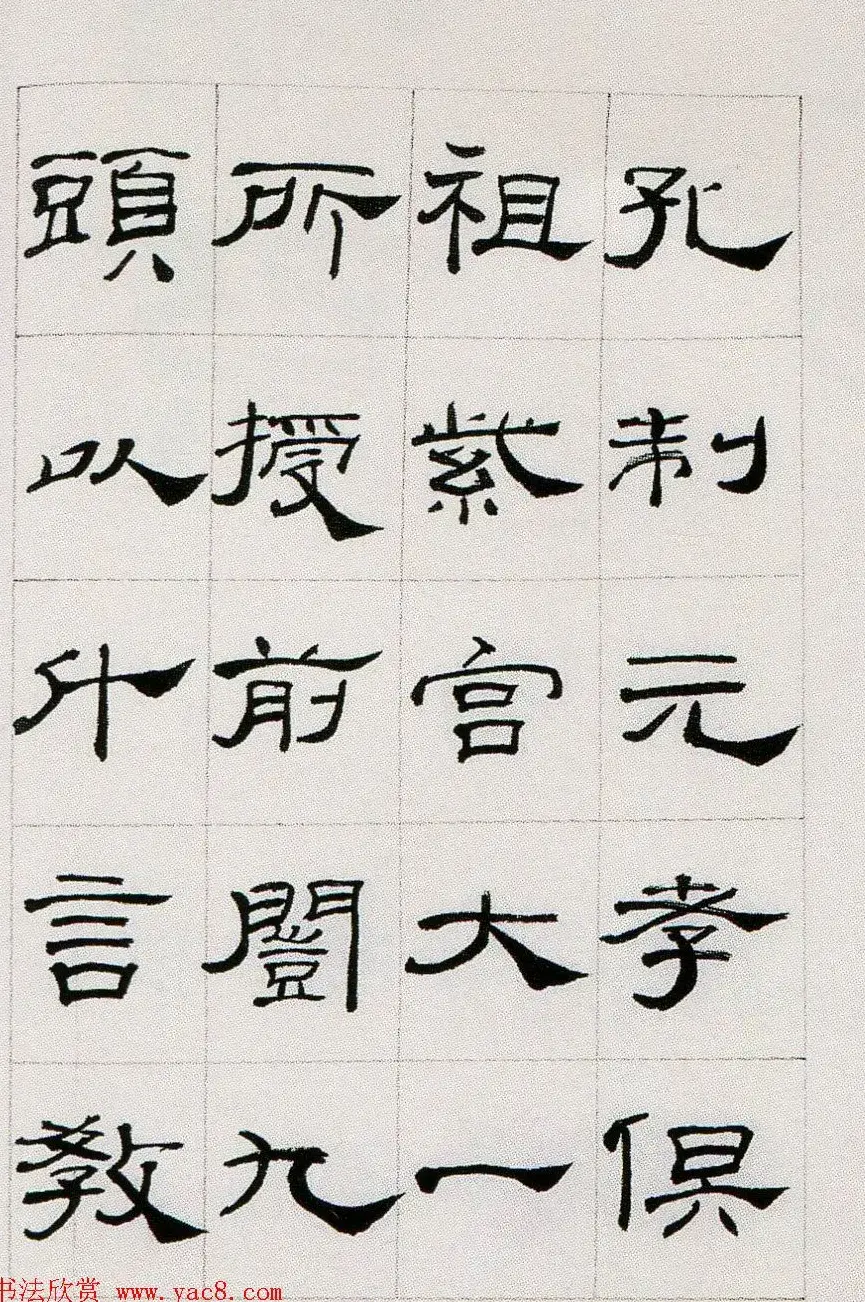 孔制元孝俱
祖紫宫大一
所授前闓九
頭以什言教
书法欣赏 www.yac8.com